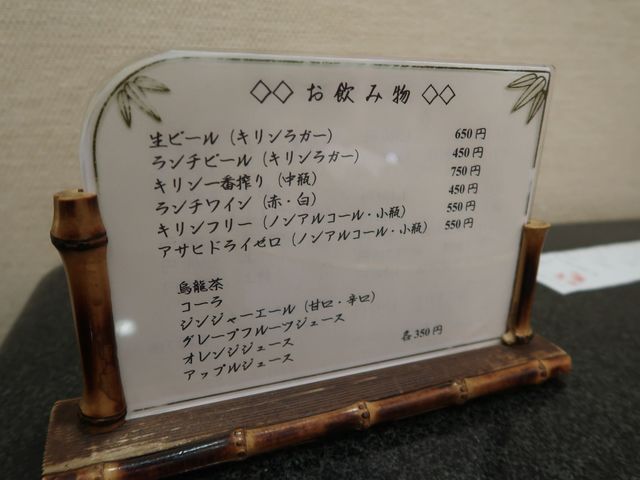 ◇◇ お飲み物 ◇◇
生ビール (キリンラガー) 650円
ランチビール (キリンラガー) 450円
キリン一番搾り (中瓶) 750円
ランチワイン (赤・白) 450円
キリンフリー (ノンアルコール・小瓶) 550円
アサヒドライゼロ (ノンアルコール・小瓶) 550円
烏龍茶
コーラ
ジンジャーエール (甘口・辛口)
グレープフルーツジュース
オレンジジュース 各350円
アップルジュース